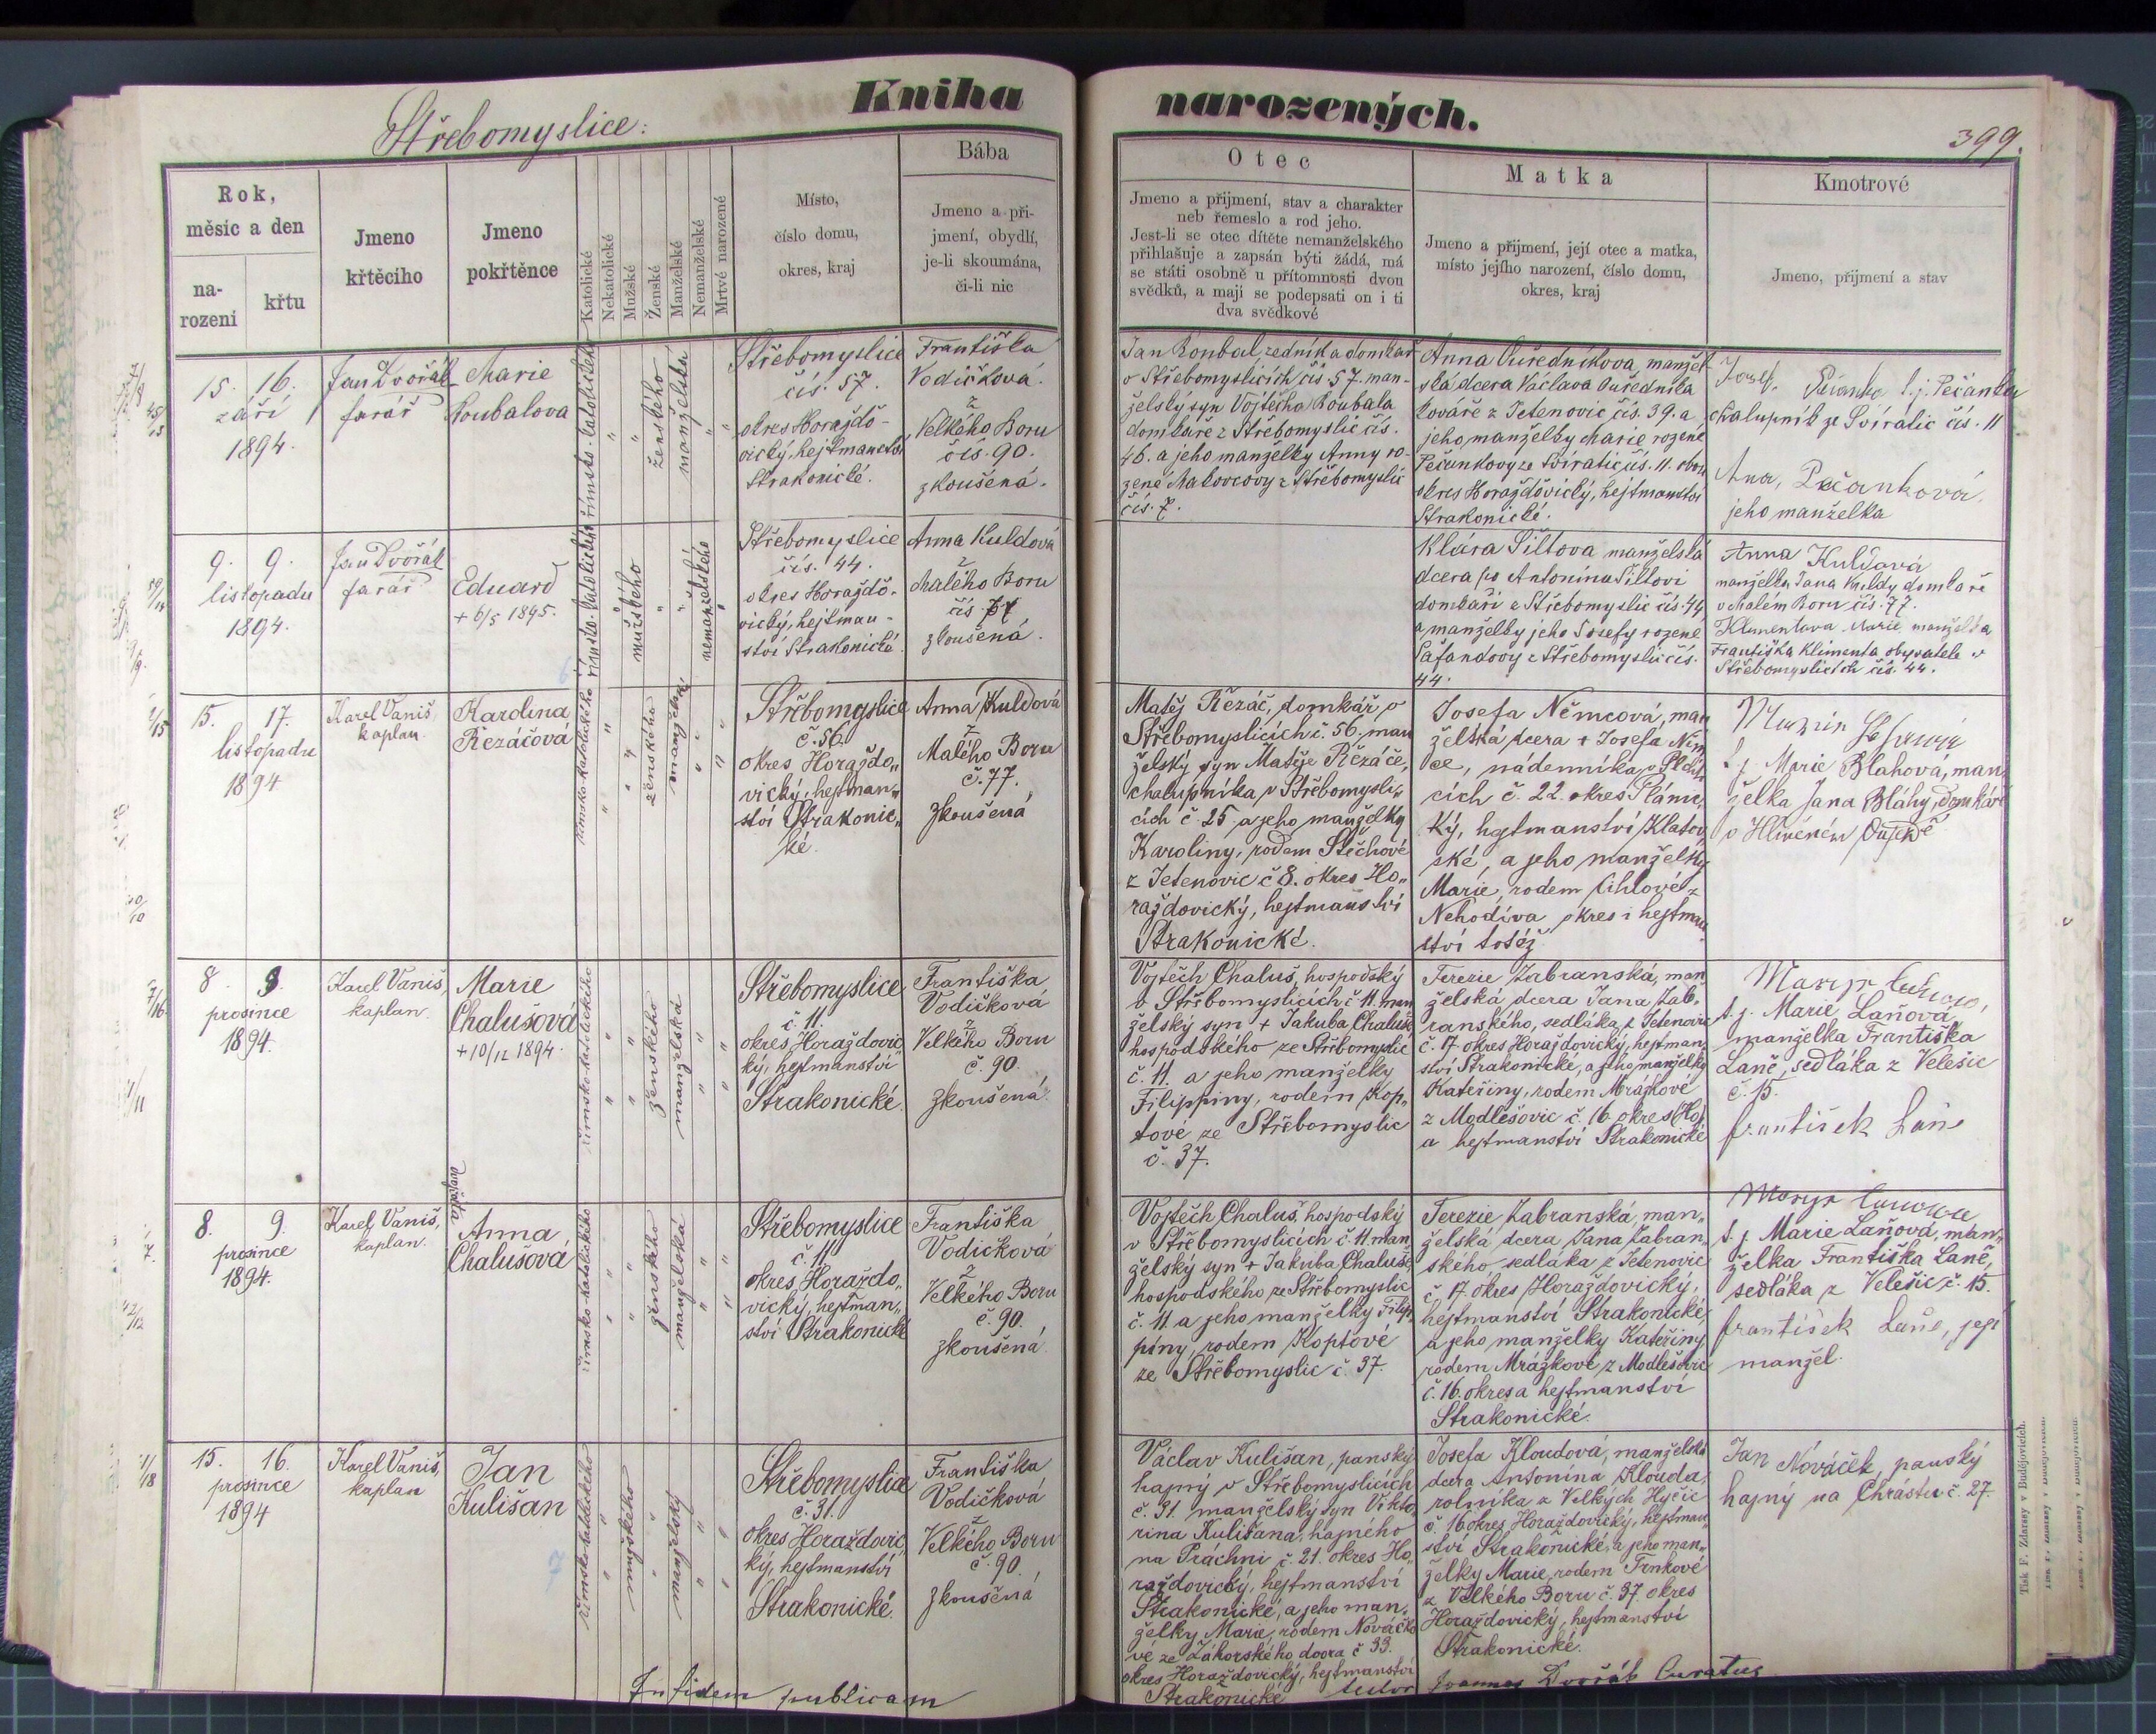 Kniha narozených.
Střebomyslice:
399.
Rok,
měsíc a den
na-
rození
křtu
Jmeno
křtěcího
Jmeno
pokřtěnce
Katolické
Nekatolické
Mužské
Ženské
Manželské
Nemanželské
Mrtvé narozené
Místo,
číslo domu,
okres, kraj
Bába
Jmeno a při-
jmení, obydlí,
je-li skoumána,
či-li nic
Otec
Jmeno a přijmení, stav a charakter
neb řemeslo a rod jeho.
Jest-li se otec dítěte nemanželského
přihlašuje a zapsán býti žádá, má
se státi osobně u přítomnosti dvou
svědků, a mají se podepsati on i ti
dva svědkové
Matka
Jmeno a přijmení, její otec a matka,
místo jejího narození, číslo domu,
okres, kraj
Kmotrové
Jmeno, přijmení a stav
15. 16.
září
1894.
Jan Dvořák
farář
Marie
Roubalova
římsko-katolického
ženského
manželská
Střebomyslice
čís. 57.
okres Horažďo-
vický, hejtmanství
Strakonické.
Františka
Vodičková.
z
Velkého Boru
čís. 90.
zkoušená.
Jan Roubal zedník a domkař
v Střebomyslicích čís. 57. man-
želský syn Vojtěcha Roubala
domkaře z Střebomyslic čís.
46. a jeho manželky Anny ro-
zené Makovcovy z Střebomyslic
čís. 7.
Anna Ouředníkova, manžel
ská dcera Václava Ouředníka
kováře z Jetenovic čís. 39. a
jeho manželky Marie rozené
Pečankovy ze Svíratic čís. 11.
okres Horažďovický, hejtmanství
Strakonické.
Josef. t. j. Pečanka
chalupník ze Svíratic čís. 11
Ana, Pečanková
jeho manželka
9. 9.
listopadu
1894.
Jan Dvořák
farář
Eduard
+ 6/5 1895.
římsko-katolického
mužského
nemanželského
Střebomyslice
čís. 44.
okres Horažďo-
vický, hejtman-
ství Strakonické.
Anna Kuldová
z
Malého Boru
čís 77
zkoušená.
Klára Šiltova manželská
dcera po Antonínu Šiltovi
domkaři z Střebomyslic čís. 44
a manželky jeho Josefy rozené
Šafandovy z Střebomyslic čís.
44.
Anna Kuldová
manželka Jana Kuldy domkaře
v Malém Boru čís. 77.
Klimentova Marie manželka
Františka Klimenta obyvatele v
Střebomyslicích čís. 44.
15. 17.
listopadu
1894
Karel Vaniš,
kaplan.
Karolina
Řezáčová
římsko-katolického
ženského
manželská
Střebomyslice
č. 56.
okres Horažďo„
vický, hejtman„
ství Strakonic„
ké.
Anna Kuldová
z
Malého Boru
č. 77.
zkoušená
Matěj Řezáč, domkář v
Střebomyslicích č. 56. man
želský syn Matěje Řezáče,
chalupníka v Střebomysli„
cích č. 25. a jeho manželky
Karoliny, rodem Stěchové
z Jetenovic č 8. okres Ho„
raždovický, hejtmanství
Strakonické.
Josefa Němcová, man
želská dcera + Josefa Něm
ce, nádenníka v
cích č. 22. okres Plánic„
ký, hejtmanství Klatov„
ské, a jeho manželky
Marie, rodem Cihlové z
Nehodíva okres i hejtman
ství totéž.
t. j. Marie Blahová, man„
želka Jana Bláhy, domkáře
v Hliněném Oujezdě
8. 9.
prosince
1894.
Karel Vaniš,
kaplan.
Marie
Chalušová
+ 10/12 1894.
římsko-katolického
ženského
manželská
Střebomyslice
č. 11.
okres Horaždovic„
ký, hejtmanství
Strakonické.
Františka
Vodičková
z
Velkého Boru
č. 90.
zkoušená.
Vojtěch Chaluš, hospodský
v Střebomyslicích č 11. man
želský syn + Jakuba Chaluše
hospodského ze Střebomyslic
č. 11. a jeho manželky
Filippiny, rodem Kop„
tové ze Střebomyslic
č. 37.
Terezie Zabranská, man„
želská dcera Jana Zab„
ranského, sedláka z Jetenovic
č. 17. okres Horaždovický, hejtman„
ství Strakonické, a jeho manželky
Kateřiny, rodem Mrázkové
z Modlešovic č. 16. okres
a hejtmanství Strakonické
t. j. Marie Laňová,
manželka Františka
Laně, sedláka z Velešic
č. 15.
frantisek Laně
dvojčata
8. 9.
prosince
1894.
Karel Vaniš,
kaplan.
Anna
Chalušová
římsko-katolického
ženského
manželská
Střebomyslice
č. 11.
okres Horažďo„
vický, hejtman„
ství Strakonické
Františka
Vodičková
z
Velkého Boru
č. 90.
zkoušená.
Vojtěch Chaluš, hospodský
v Střebomyslicích č. 11. man
želský syn + Jakuba Chaluše,
hospodského ze Střebomyslic
č. 11 a jeho manželky Filip„
piny, rodem Koptové
ze Střebomyslic č. 37.
Terezie Zabranská, man„
želská dcera Jana Zabran„
ského sedláka z Jetenovic
č. 17. okres Horažďovický,
hejtmanství Strakonické,
a jeho manželky Kateřiny
rodem Mrázkové z Modlešovic
č. 16. okres a hejtmanství
Strakonické.
t. j. Marie Laňová, man„
želka Františka Laně,
sedláka z Velešic č. 15.
frantisek Laně, její
manžel.
15. 16.
prosince
1894
Karel Vaniš,
kaplan
Jan
Kulišan
římsko-katolického
mužského
manželský
Střebomyslice
č. 31.
okres Horaždovic„
ký, hejtmanství
Strakonické.
Františka
Vodičková
z
Velkého Boru
č. 90.
zkoušená
Václav Kulišan, panský
hajný v Střebomyslicích
č. 31. manželský syn Vikto„
rina Kulišana, hajného
na Práchni č. 21. okres Ho„
raždovický, hejtmanství
Strakonické, a jeho man„
želky Marie, rodem Nováčko
vé ze Zákorského dvora č 33.
okres Horaždovický, hejtmanství
Strakonické
Josefa Kloudová, manželská
dcera Antonína Klouda,
rolníka z Velkých Hyčic
č. 16 okres Horaždovický, hejtman„
ství Strakonické, a jeho man„
želky Marie, rodem Trnkové
z Velkého Boru č. 37. okres
Horaždovický, hejtmanství
Strakonické.
Jan Nováček, panský
hajný na Chrástu č. 27.
In fidem publicam
Joannes Dvořák Curatus
Tisk F. Zdarssy v Budějovicích.